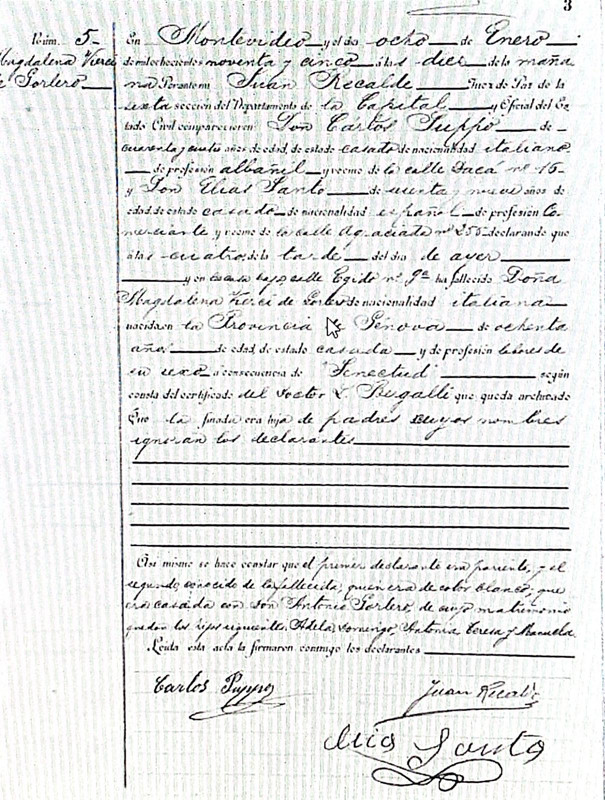 3
Núm. 5-
Magdalena Vierci
de Gorlero
En Montevideo y el dia ocho de Enero
de mil ochocientos noventa y cinco á las diez de la maña
na Por ante mi Juan Recalde Juez de Paz de la
sexta sección del Departamento de la Capital y Oficial del Es-
tado Civil comparecieron Don Carlos Puppo de
cuarenta y años de edad, de estado casado de nacionalidad italiano
de profesión albañil y vecino de la calle Yacá nº 15
y Don Elias Santo de y nueve años de
edad, de estado casado de nacionalidad español de profesión Co-
merciante y vecino de la calle Agraciada nº 255 declarando que
á las cuatro de la tarde del dia de ayer
y en calle Egido nº ha fallecido Doña
Magdalena Vierci de Gorlero de nacionalidad italiana
nacida en la Provincia Génova de ochenta
años de edad, de estado casada y de profesión labores de
su sexo á consecuencia de "Senectud" según
consta del certificado del Doctor L. Bergalli que queda archivado
Que la finada era hija de padres cuyos nombres
ignoran los declarantes
Asi mismo se hace constar que el primer declarante era pariente, y el
segundo conocido de la fallecida, quien era de color blanco, que
era casada con don Antonio Gorlero, de cuyo matrimonio
quedan los hijos siguientes, Adela, Domingo, Antonia Teresa y Manuela.
Leida esta acta la firmaron conmigo los declarantes
Carlos Puppo
Juan Recalde
Elias Santo